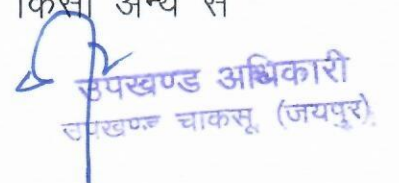 किसी अन्य से
उपखण्ड अधिकारी
उपखण्ड चाकसू (जयपुर)